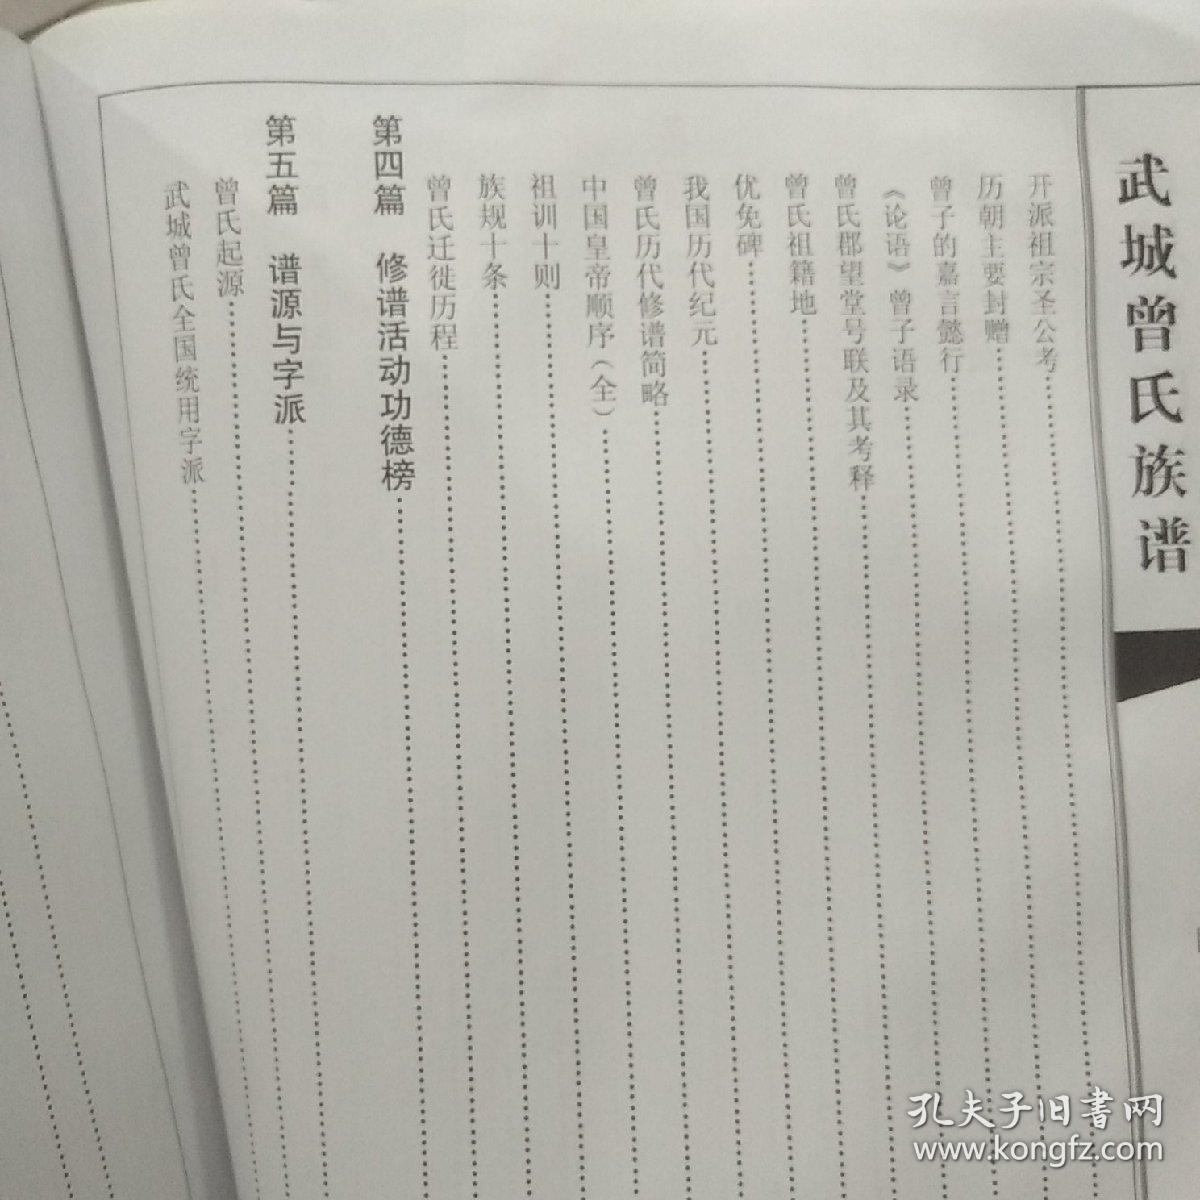 武城曾氏族谱
开派祖宗圣公考
历朝主要封赠
曾子的嘉言懿行
《论语》曾子语录
曾氏郡望堂号联及其考释
曾氏祖籍地
优免碑
我国历代纪元
曾氏历代修谱简略
中国皇帝顺序（全）
祖训十则
族规十条
曾氏迁徙历程
第四篇 修谱活动功德榜
第五篇 谱源与字派
曾氏起源
武城曾氏全国统用字派
孔夫子旧书网
www.kongfz.com